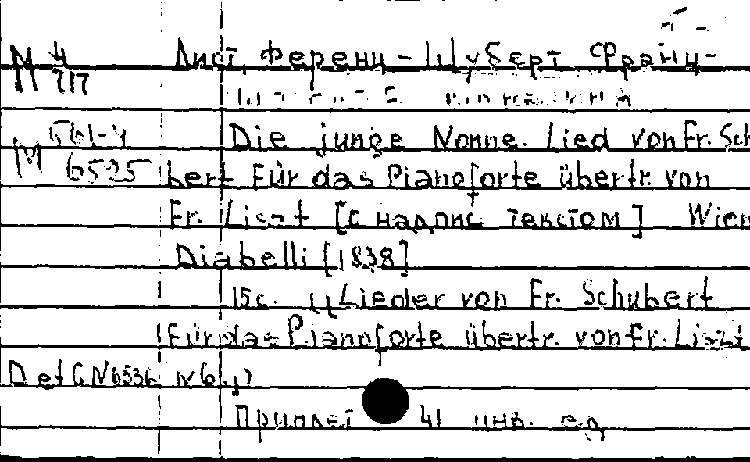 М 4
717
Лист, Ференц – Шуберт Франц –
М 561-4
6525
Die junge Nonne. Lied von Fr. Sch
bert Für das Pianoforte übertr. von
Fr. Liszt [с надпис текстом] Wien
Diabelli [1838]
15с. Lieder von Fr. Schubert
Für das Pianoforte übertr. von Fr. Liszt
D et C N 6536
Приплет 41 инв. ед